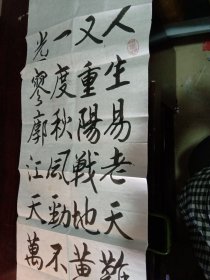 人生易老天難
又重陽戰地黄
一度秋風勁不
光寥廓江天萬